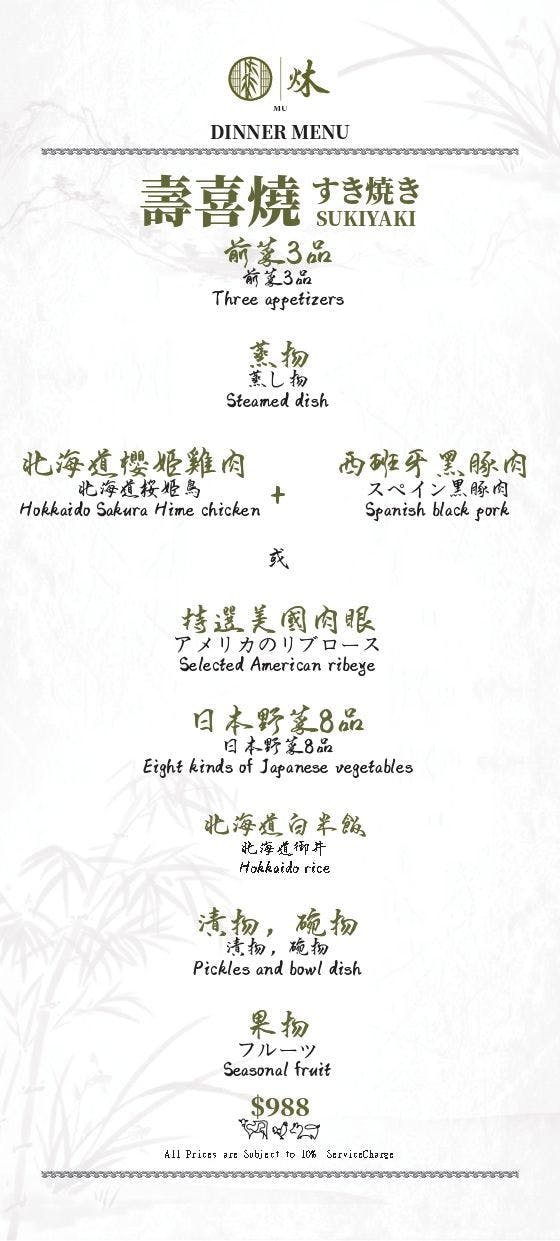 炑
MU
DINNER MENU
壽喜燒 すき焼き
SUKIYAKI
前菜3品
前菜3品
Three appetizers
蒸物
蒸し物
Steamed dish
北海道櫻姬雞肉
北海道桜姫鳥
Hokkaido Sakura Hime chicken
+
西班牙黑豚肉
スペイン黒豚肉
Spanish black pork
或
特選美國肉眼
アメリカのリブロース
Selected American ribeye
日本野菜8品
日本野菜8品
Eight kinds of Japanese vegetables
北海道白米飯
北海道御丼
Hokkaido rice
漬物，碗物
漬物，碗物
Pickles and bowl dish
果物
フルーツ
Seasonal fruit
$988
All Prices are Subject to 10% ServiceCharge